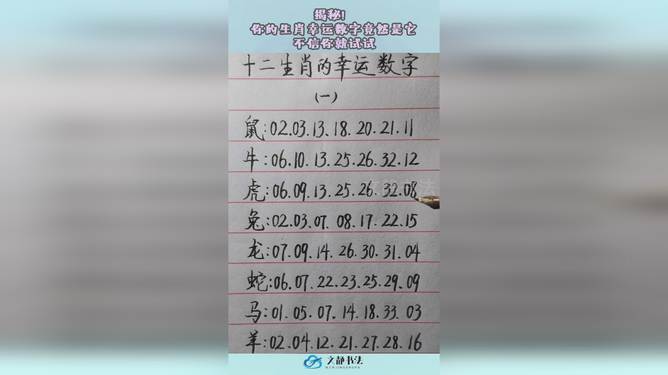 揭秘!
你的生肖幸运数字竟然是它
不信你就试试
十二生肖的幸运数字
(一)
鼠:02.03.13.18.20.21.11
牛:06.10.13.25.26.32.12
虎:06.09.13.25.26.32.08
兔:02.03.07.08.17.22.15
龙:07.09.14.26.30.31.04
蛇:06.07.22.23.25.29.09
马:01.05.07.14.18.33.03
羊:02.04.12.21.27.28.16
文静书法